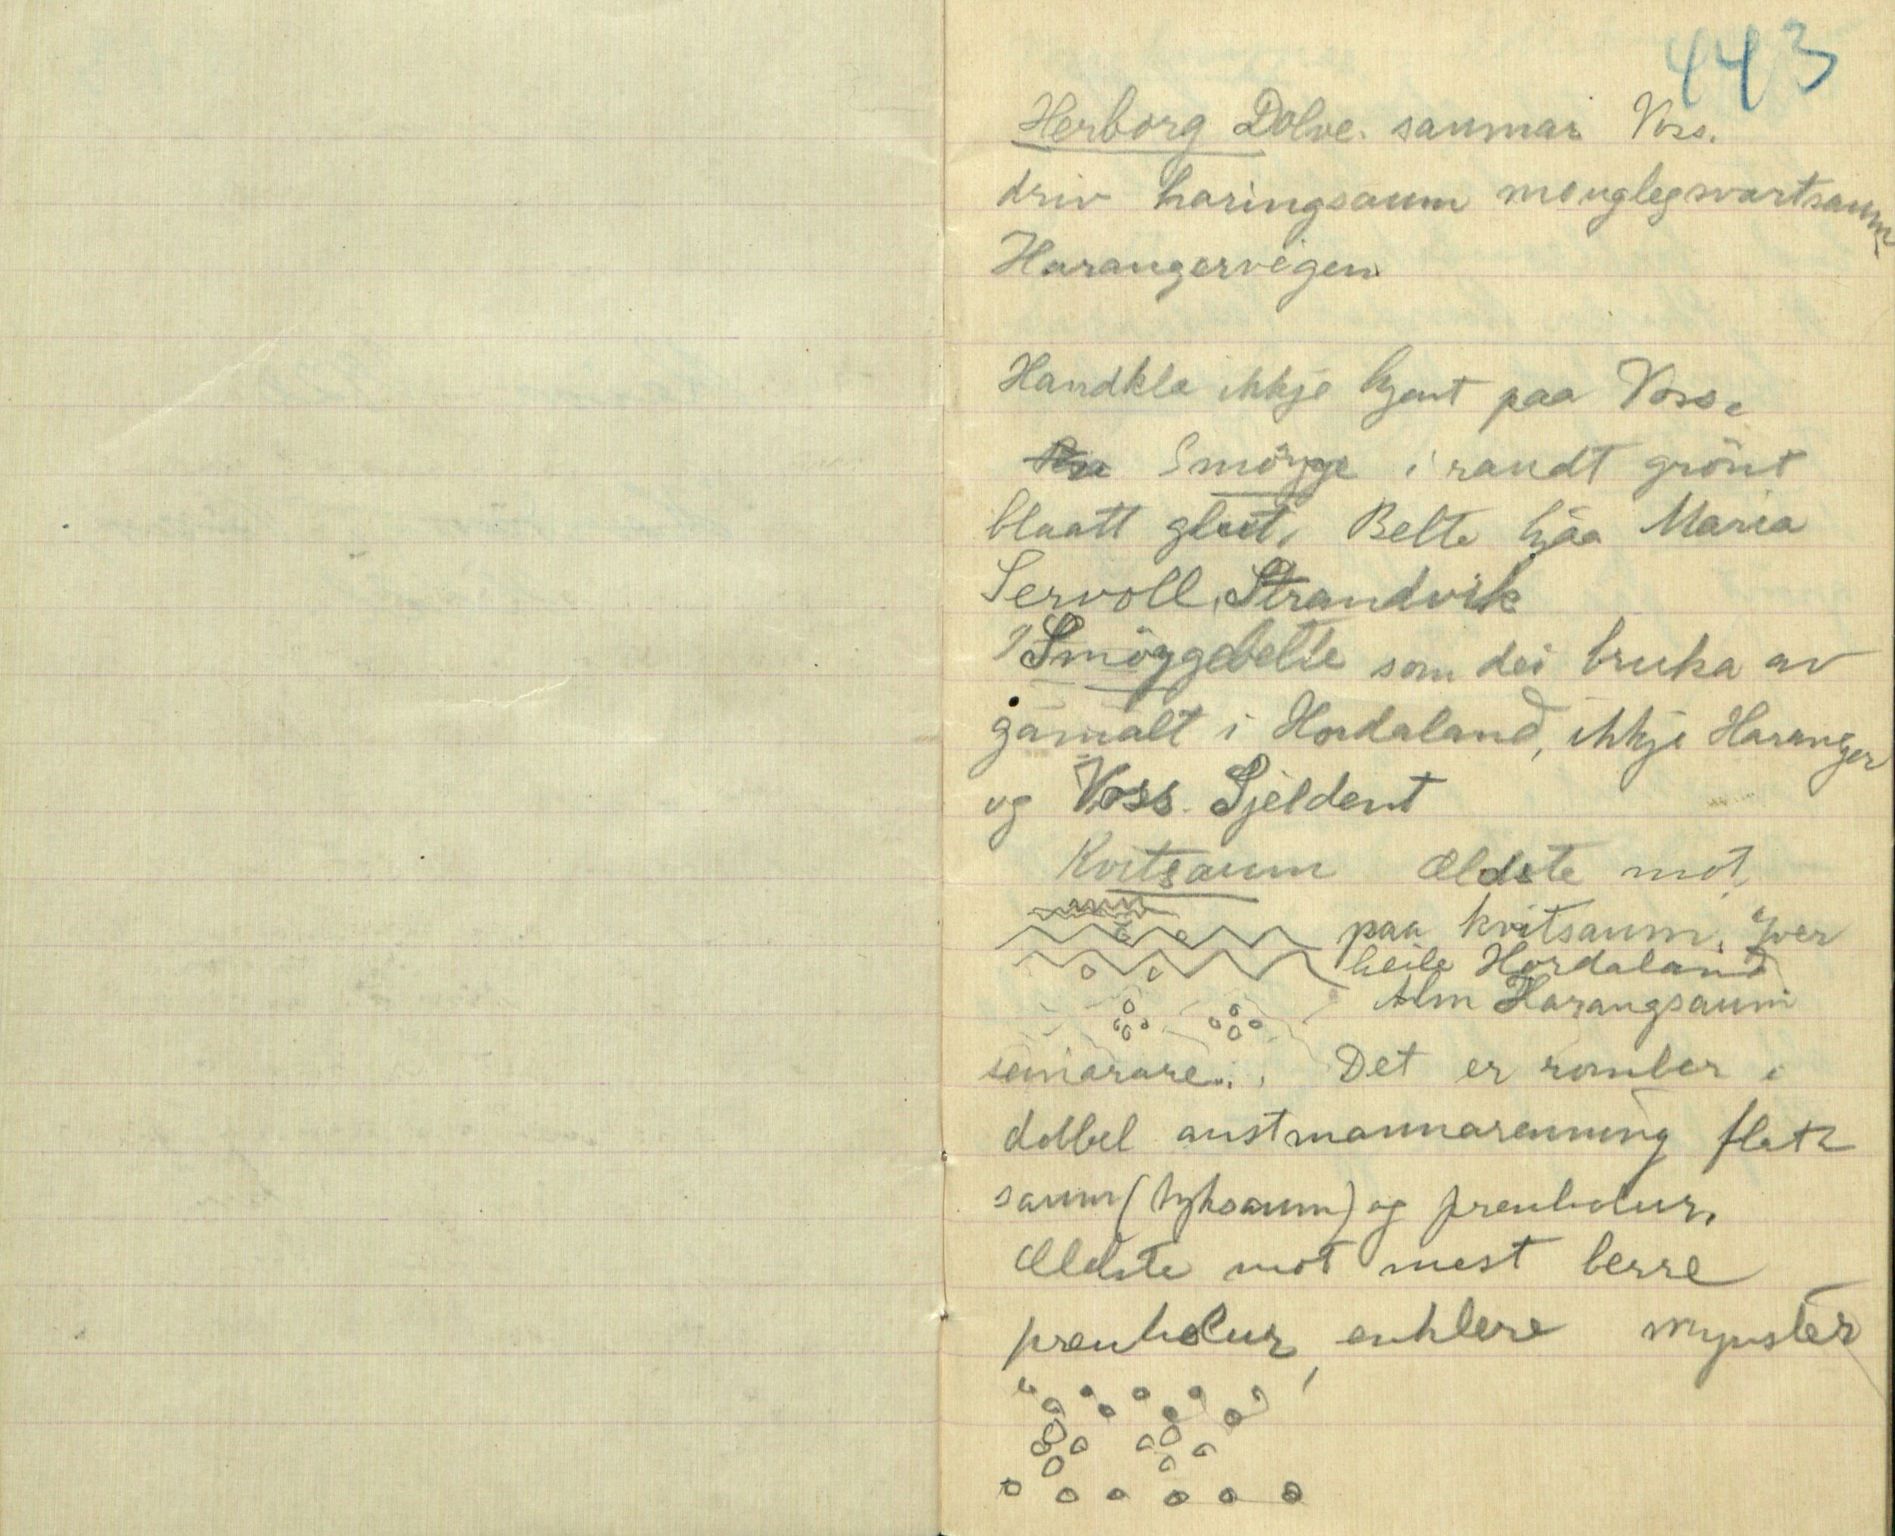 443
Herborg Dolve. saumar Voss.
driv haringsaum mouglegsvartsaum
Harangervegen
Handkle ikkje kjent paa Voss.
Smöygje i raudt grönt
blaatt gult. Belte hjaa Maria
Servoll, Strandvik
Smöyggebelte som dei bruka av
gamalt i Hordaland, ikkje Haranger
og Voss. Sjeldent
Kvitsaum Ældste mot
paa kvitsaum. Yver
heile Hordaland
Alm Harangsaum
senarare... Det er romber i
dobbel austmannarenning flat
saum (tyksaum) og prenholur.
Ældste mot mest berre
prenholur, enklere mynster